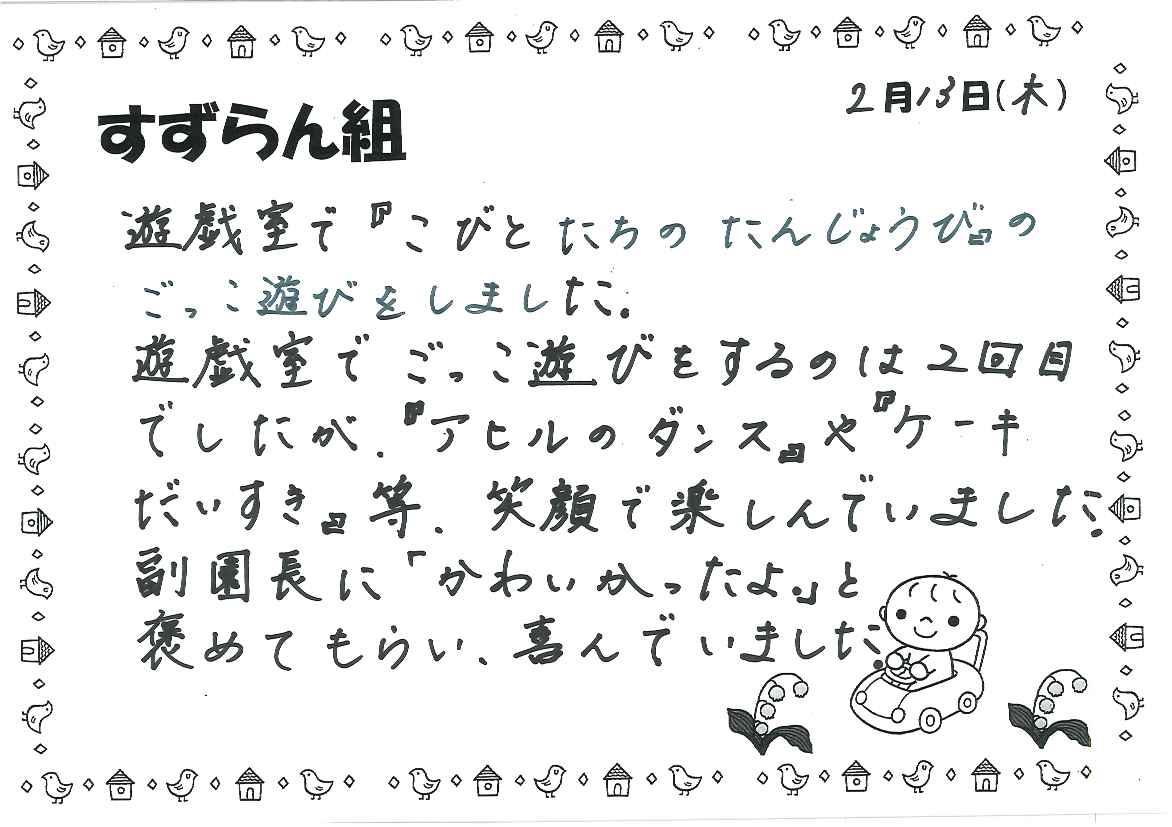 2月13日(木)
すずらん組
遊戯室で『こびとたちのたんじょうび』の
ごっこ遊びをしました。
遊戯室でごっこ遊びをするのは2回目
でしたが、『アヒルのダンス』や『ケーキ
だいすき』等、笑顔で楽しんでいました。
副園長に「かわいかったよ。」と
褒めてもらい、喜んでいました。